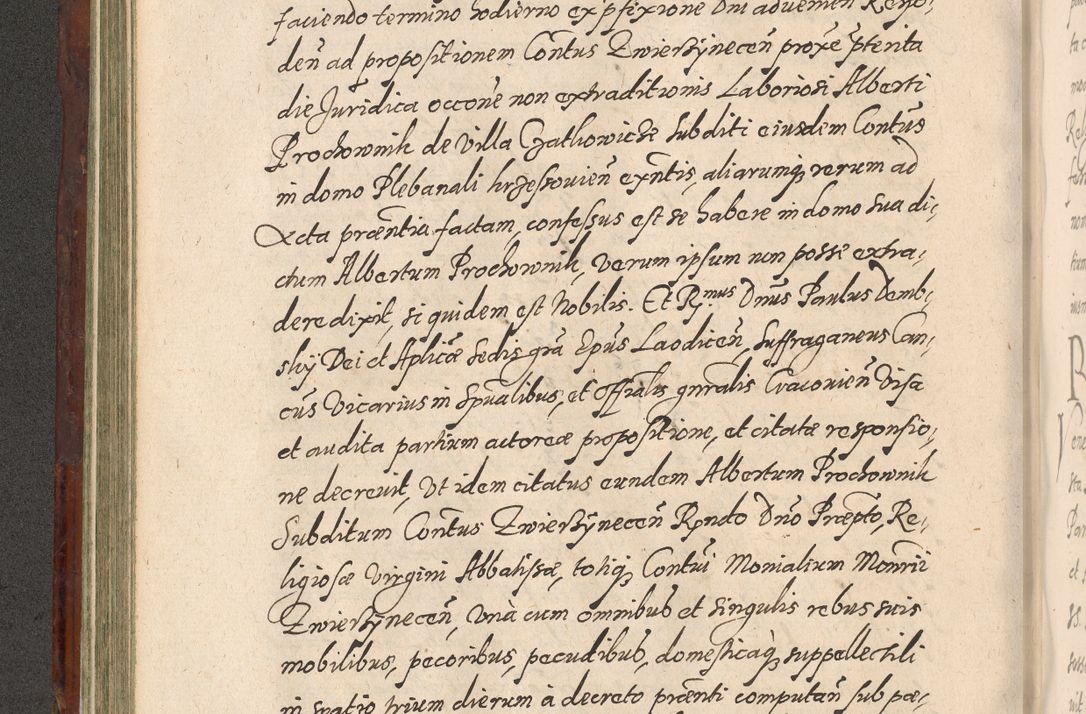 faciendo termino hodierno ex pfixione Dni advenien Respo:
deñ ad propositionem Contus Zwierzyneceñ proxe pterita
die Juridica occone non extraditionis Laboriosi Alberti
Prochownik de Villa Czatkowicze subditi eiusdem Contus
in domo Plebanali krzessovieñ exntis, aliarumq rerum ad
Acta præntia factam, confessus est se habere in domo sua di:
ctum Albertum Prochownik, Verum ipsum non posse extra:
dere dixit, siquidem est Nobilis. Et Rmus Dnus Paulus Demb:
skÿ Dei et Aplicæ Sedis grã Epus Laodiceñ, Suffraganeus Can:
cus Vicarius in Spualibus, et Offialis gnralis Cracovieñ Visa
et audita partium actoreæ propositione, et citatæ responsio:
ne decrevit, Ut idem citatus eundem Albertum Prochownik
Subditum Contus Zwierzyneceñ Rndo Dno Præpto, Re:
ligiosæ Virgini Abbatissæ, totiq Contui Monialium Monrii
Zwierzyneceñ, Unà cum omnibus et singulis rebus suis
mobilibus, pecoribus, pecudibus, domesticaq suppellectili
in spatio trium dierum à decreto prænti computañ sub pæ: